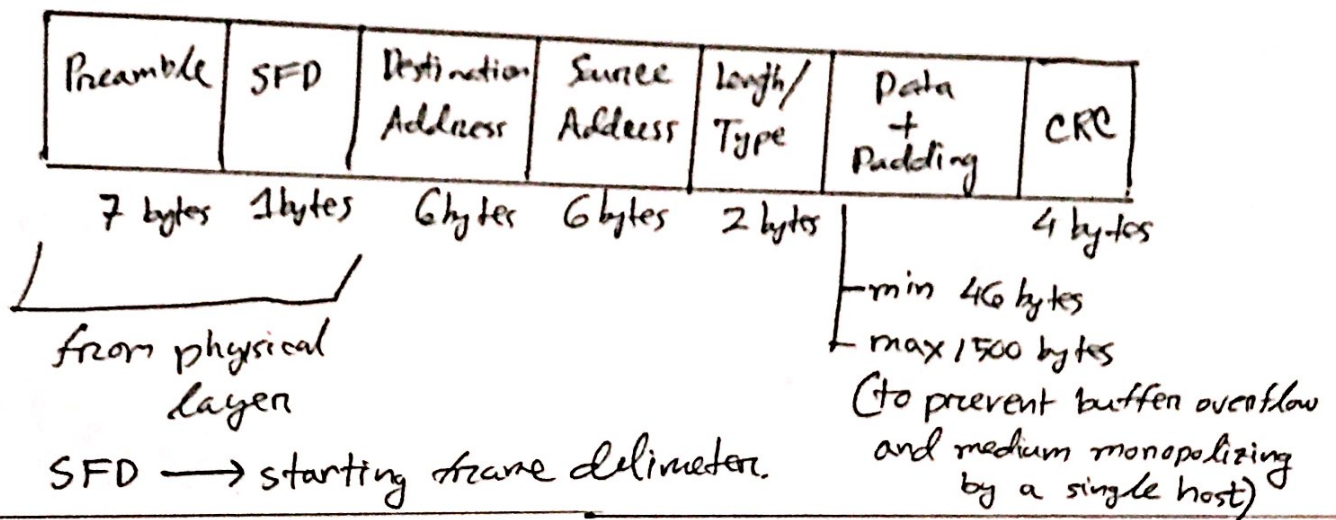 Preamble
SFD
Destination
Address
Source
Address
Length/
Type
Data
+
Padding
CRC
7 bytes
1 bytes
6 bytes
6 bytes
2 bytes
4 bytes
min 46 bytes
max 1500 bytes
(to prevent buffer overflow
and medium monopolizing
by a single host)
from physical
layer
SFD → starting frame delimeter.